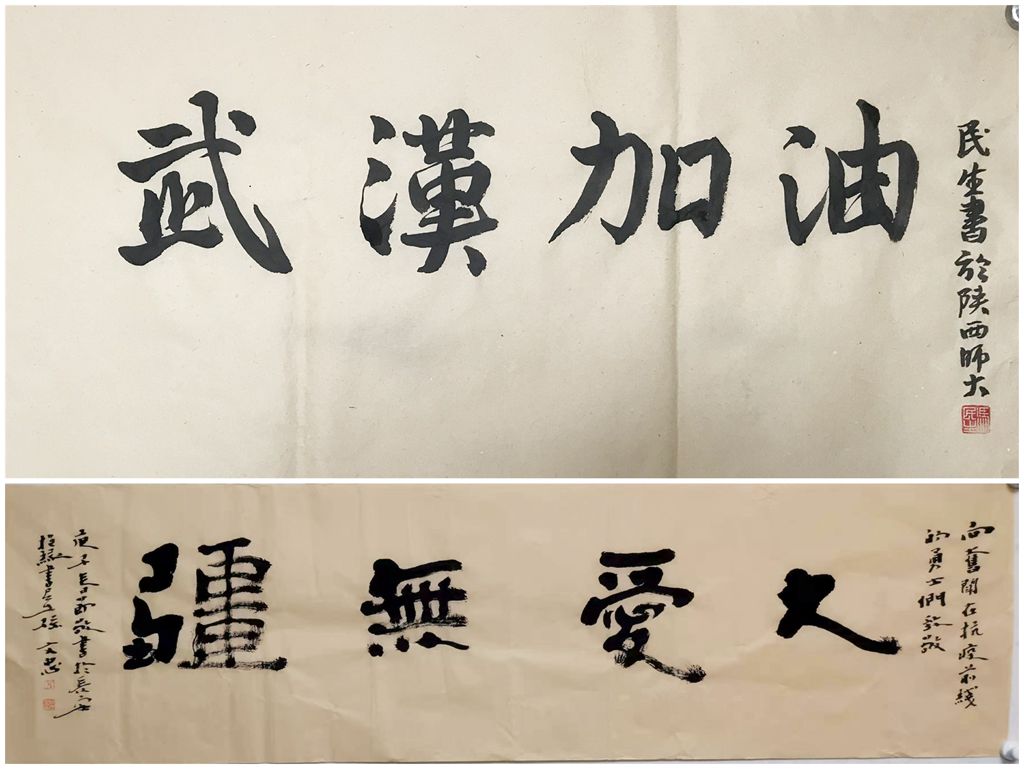 武漢加油
民生書於陕西師大
大愛無疆
向奮鬪在抗疫前綫
的勇士們致敬
庚子 敬書於長安
書屋 文忠